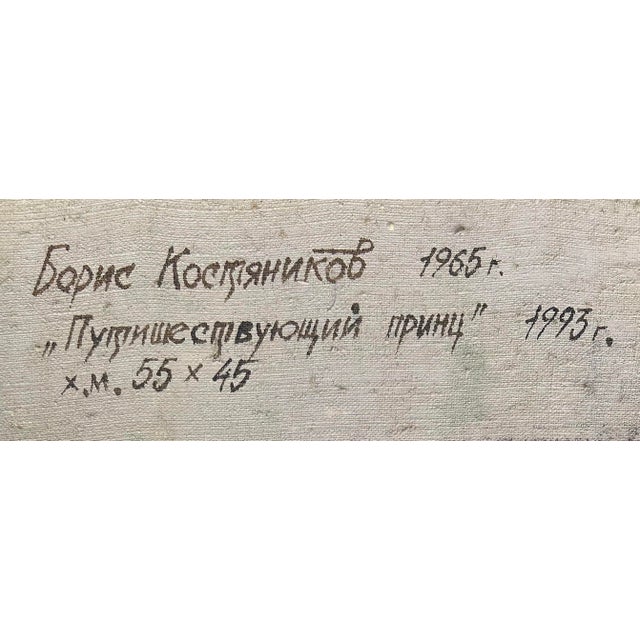 Борис Костяников 1965 г.
„Путишествующий принц" 1993 г.
х.м. 55 х 45